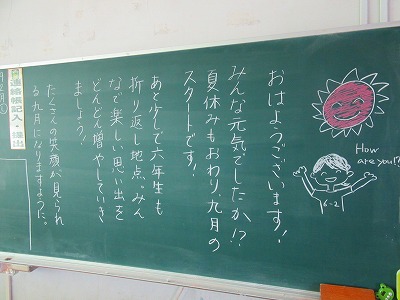 おはようございます！
みんな元気でしたか!?
夏休みもおわり、九月の
スタートです！
あと少しで六年生も
折り返し地点。みん
なで楽しい思い出を
どんどん増やしていき
ましょう！
たくさんの笑顔が見られ
る九月になりますように。
How
are you!?
6-2
連絡帳記入・提出